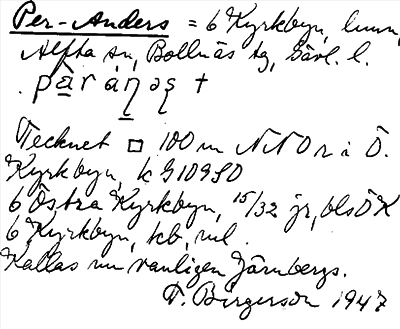 Per-Anders = 6 Kyrkbyn, hmn,
Alfta sn, Bollnäs tg, Gävl. l.
pär áṇ əṣ +
Tecknet □ 100 m NNO r i Ö.
Kyrkbyn, k G 109 SO
6 Östra Kyrkbyn, 15/32 jr, bls Ö K
6 Kyrkbyn, kb, ml.
Kallas nu vanligen Järnbergs.
F. Birgerson 1947